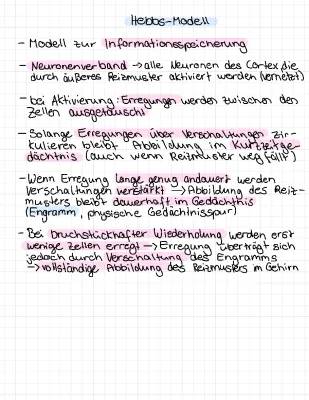 Hebbs-Modell
- Modell zur Informationsspeicherung
- Neuronenverband → alle Neuronen des Cortex, die
durch äußeres Reizmuster aktiviert werden (vernetzt)
- bei Aktivierung: Erregungen werden zwischen den
Zellen ausgetauscht
- Solange Erregungen über Verschaltungen zir-
kulieren bleibt Abbildung im Kurzzeitge-
dächtnis (auch wenn Reizmuster wegfällt)
- Wenn Erregung lange genug andauert werden
Verschaltungen verstärkt → Abbildung des Reiz-
musters bleibt dauerhaft im Gedächtnis
(Engramm, physische Gedächtnisspur)
- Bei bruchstückhafter Wiederholung werden erst
wenige Zellen erregt → Erregung überträgt sich
jedoch durch Verschaltung des Engramms
→ vollständige Abbildung des Reizmusters im Gehirn